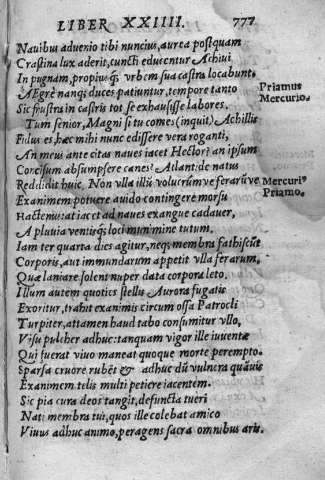 LIBER XXIIII. 777
Nauibus aduenio tibi nuncius, aurea postquam
Crastina lux aderit, cuncti educentur Achiui
In pugnam, propiusq; vrbem sua castra locabunt.
Aegrè nanq; duces patiuntur, tempore tanto
Sic frustra in castris tot se exhausisse labores.
Priamus
Mercurio.
Tum senior, Magni si tu comes (inquit) Achillis
Fidus es, hæc mihi nunc edissere vera roganti,
An meus ante citas naues iacet Hector? an ipsum
Concisum absumpsere canes? Atlantide natus
Reddidit huic, Non vlla illũ volucrumve ferarũve
Mercuri⁹
Priamo.
Exanimem potuere auido contingere morsu
Hactenus: at iacet ad naues exangue cadauer,
A pluuia ventisq; loci munimine tutum.
Iam ter quarta dies agitur, neq; membra fathiscũt
Corporis, aut immundarum appetit vlla ferarum,
Quæ laniare solent nuper data corpora leto.
Illum autem quoties stellis Aurora fugatis
Exoritur, trahit exanimis circum ossa Patrocli
Turpiter, attamen haud tabo consumitur vllo,
Visu pulcher adhuc: tanquam vigor ille iuuentæ
Qui fuerat viuo maneat quoque morte perempto.
Sparsa cruore rubẽt & adhuc dũ vulnera quãuis
Exanimem telis multi petiere iacentem.
Sic pia cura deos tangit, defuncta tueri
Nati membra tui, quos ille colebat amico
Viuus adhuc animo, peragens sacra omnibus aris.